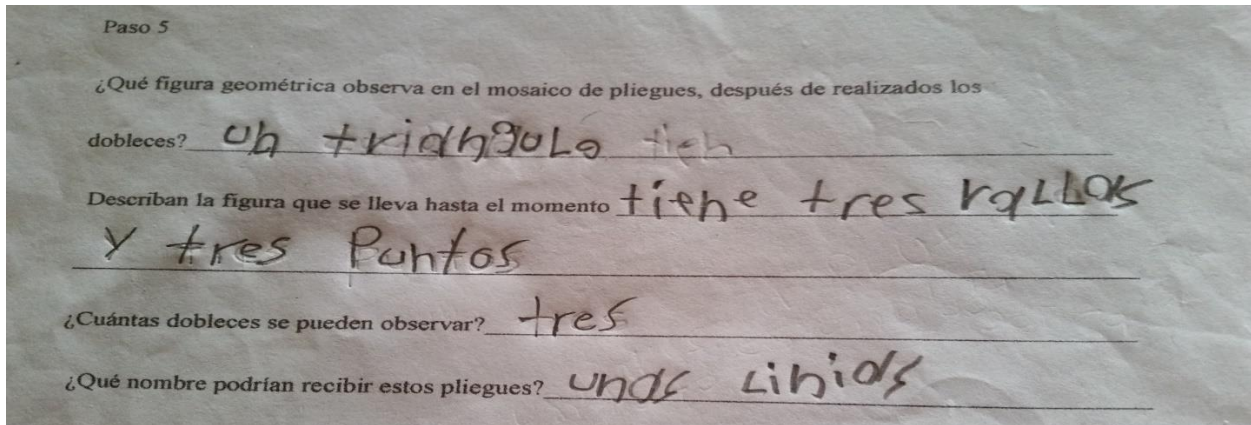 Paso 5
¿Qué figura geométrica observa en el mosaico de pliegues, después de realizados los
dobleces? un triangulo tien
Describan la figura que se lleva hasta el momento tiene tres rallas
y tres Puntos
¿Cuántas dobleces se pueden observar? tres
¿Qué nombre podrían recibir estos pliegues? unas Linias